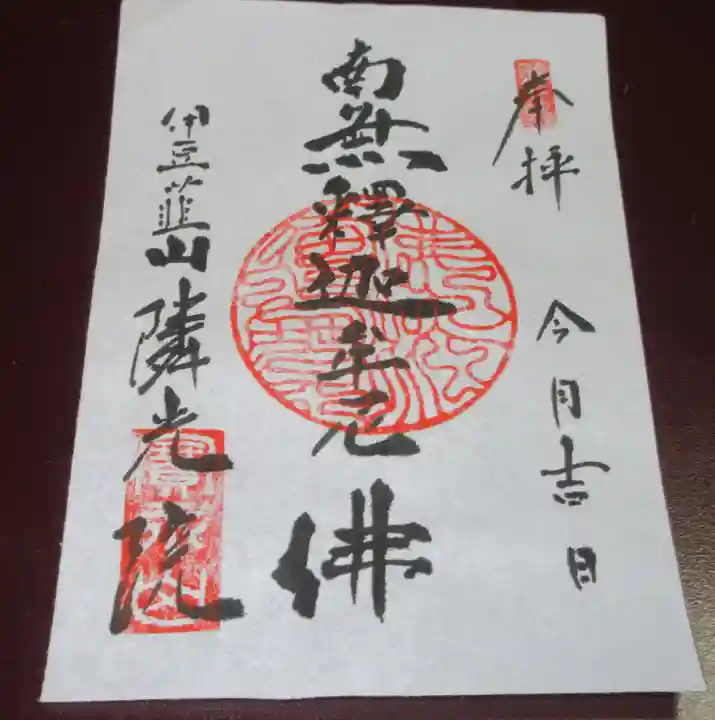 奉拝 今月吉日
南無釋迦牟尼佛
伊豆韮山隣光院